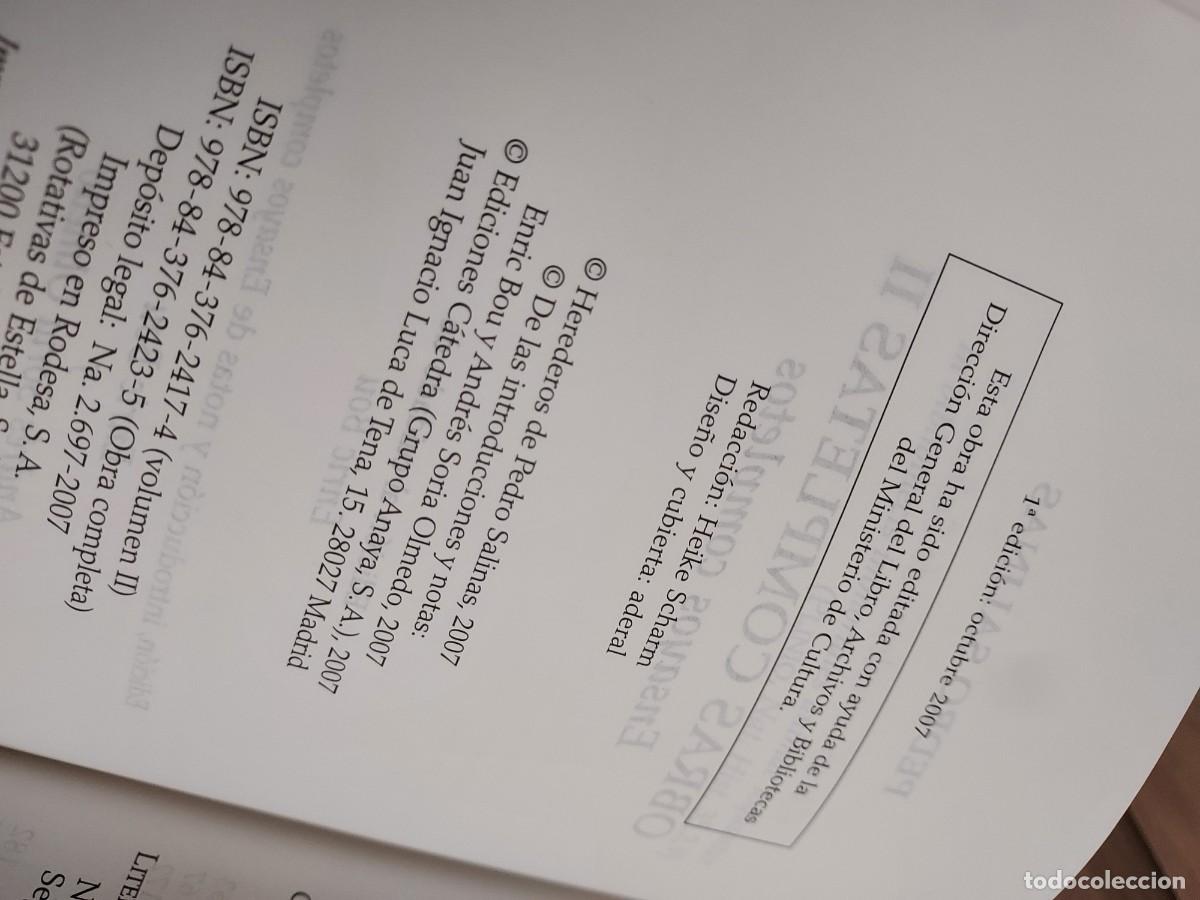 1ª edición: octubre 2007
Esta obra ha sido editada con ayuda de la
Dirección General del Libro, Archivos y Bibliotecas
del Ministerio de Cultura.
Redacción: Heike Scharm
Diseño y cubierta: aderal
© Herederos de Pedro Salinas, 2007
© De las introducciones y notas:
Enric Bou y Andrés Soria Olmedo, 2007
© Ediciones Cátedra (Grupo Anaya, S.A.), 2007
Juan Ignacio Luca de Tena, 15. 28027 Madrid
ISBN: 978-84-376-2417-4 (volumen II)
ISBN: 978-84-376-2423-5 (Obra completa)
Depósito legal: Na. 2.697-2007
Impreso en Rodesa, S. A.
(Rotativas de Estella, S. A.
31200
todocoleccion